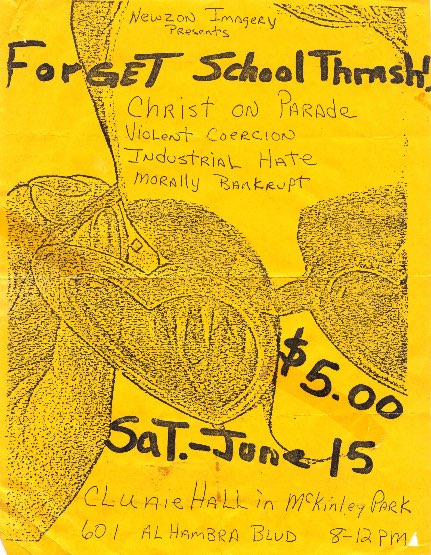 Newzon Imagery
Presents
Forget School Thrash!
Christ on Parade
Violent Coercion
Industrial Hate
Morally Bankrupt
$5.00
Sat.-June 15
Clunie Hall in McKinley Park
601 Alhambra Blvd 8-12 PM